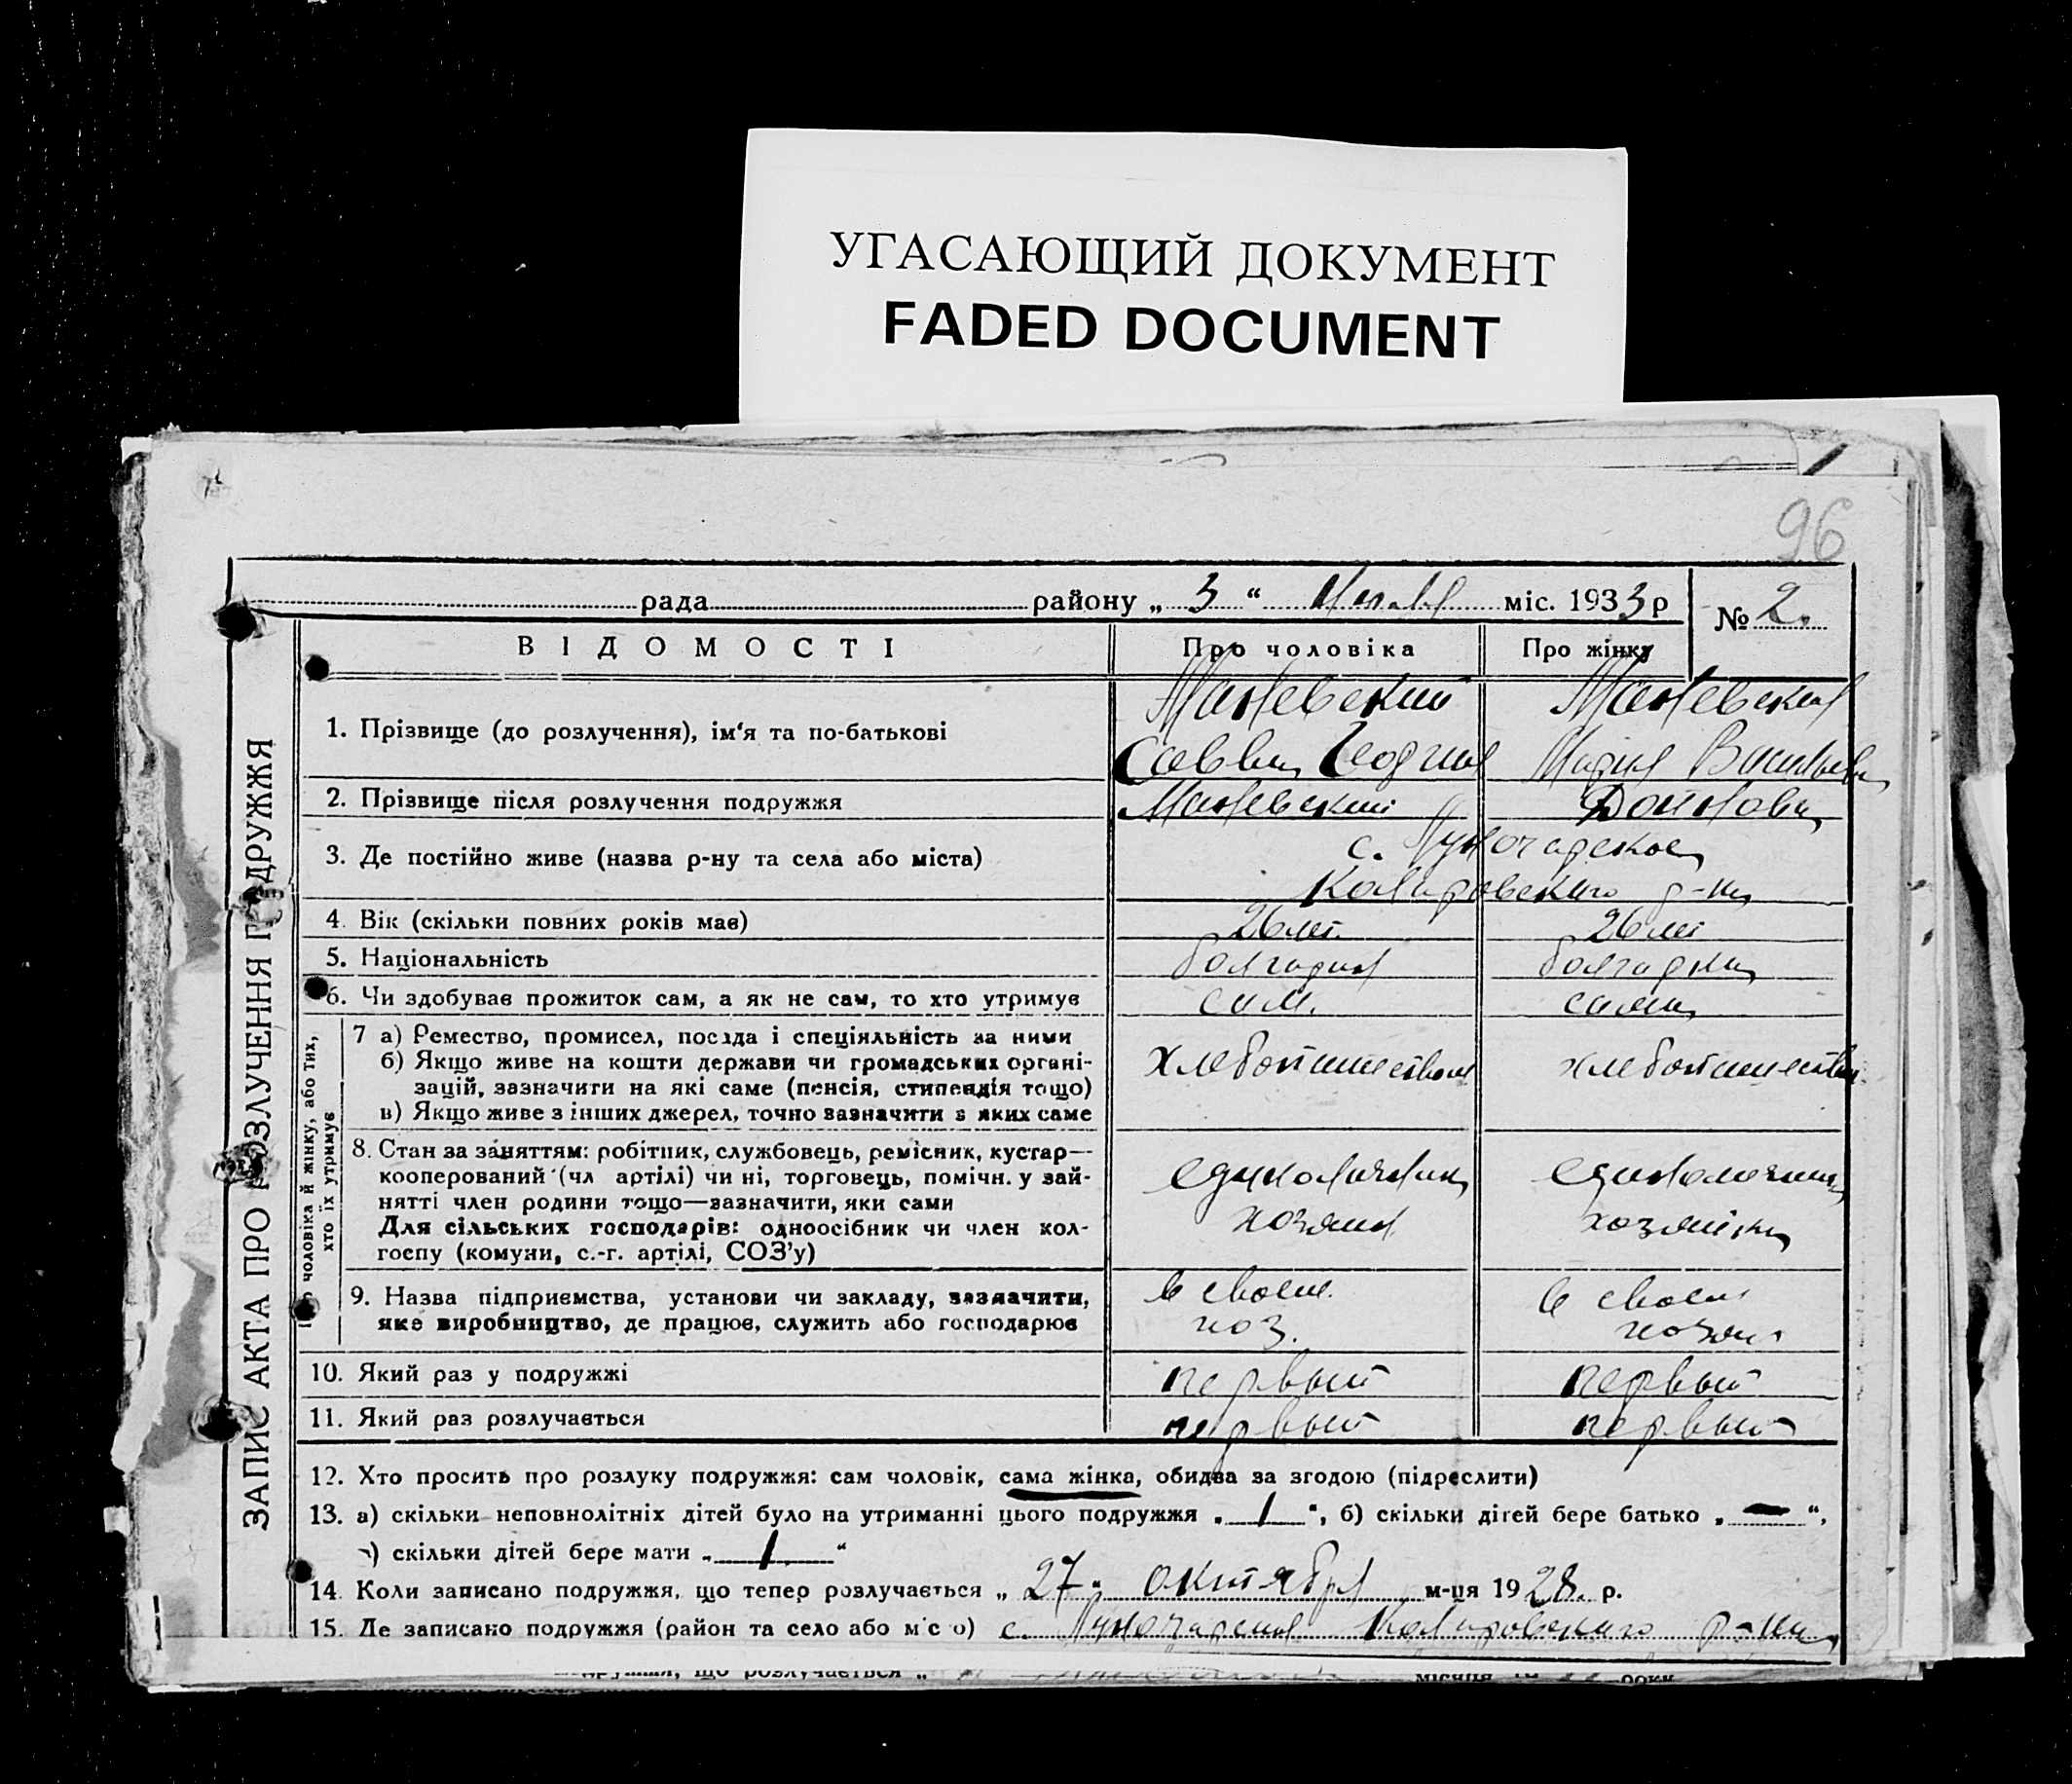 УГАСАЮЩИЙ ДОКУМЕНТ
FADED DOCUMENT
96
рада району „ 3 “ міс. 1933 р
№ 2.
ЗАПИС АКТА ПРО РОЗЛУЧЕННЯ ПОДРУЖЖЯ
ВІДОМОСТІ Про чоловіка Про жінку
1. Прізвище (до розлучення), ім‘я та по-батькові
Маневский Маневская
Савва Георгиев Мария Васильевна
2. Прізвище після розлучення подружжя Маневский Дойнова
3. Де постійно живе (назва р-ну та села або міста) с. Луночарское
Коларовского р-на
4. Вік (скільки повних років має) 26 лет. 26 лет
5. Національність болгарин болгарка
6. Чи здобував прожиток сам, а як не сам, то хто утримує сам. сама
чоловіка й жінку, або тих,
хто їх утримує
7 а) Ремество, промисел, посада і спеціяльність за ними
б) Якщо живе на кошти держави чи громадських органі-
зацій, зазначити на які саме (пенсія, стипендія тощо)
в) Якщо живе з інших джерел, точно зазначити з яких саме
хлебопашеством хлебопашеством
8. Стан за заняттям: робітник, службовець, ремісник, кустар—
кооперований (чл артілі) чи ні, торговець, помічн. у зай-
нятті член родини тощо—зазначити, яки сами
Для сільських господарів: одноосібник чи член кол-
госпу (комуни, с.-г. артілі, СОЗ’у)
единоличник единоличница
хозяин хозяйка
9. Назва підприємства, установи чи закладу, зазначити,
яке виробництво, де працює, служить або господарює
в своем. в своем
хоз.
10. Який раз у подружжі первый первый
11. Який раз розлучається первый первый
12. Хто просить про розлуку подружжя: сам чоловік, сама жінка, обидва за згодою (підреслити)
13. а) скільки неповнолітніх дітей було на утриманні цього подружжя „ 1 “, б) скільки дітей бере батько „ — “,
в) скільки дітей бере мати „ 1 “
14. Коли записано подружжя, що тепер розлучається „ 27 “ октября м-ця 1928. р.
15. Де записано подружжя (район та село або місто) с. Луночарское Коларовского р-на
що розлучається „ місяця року